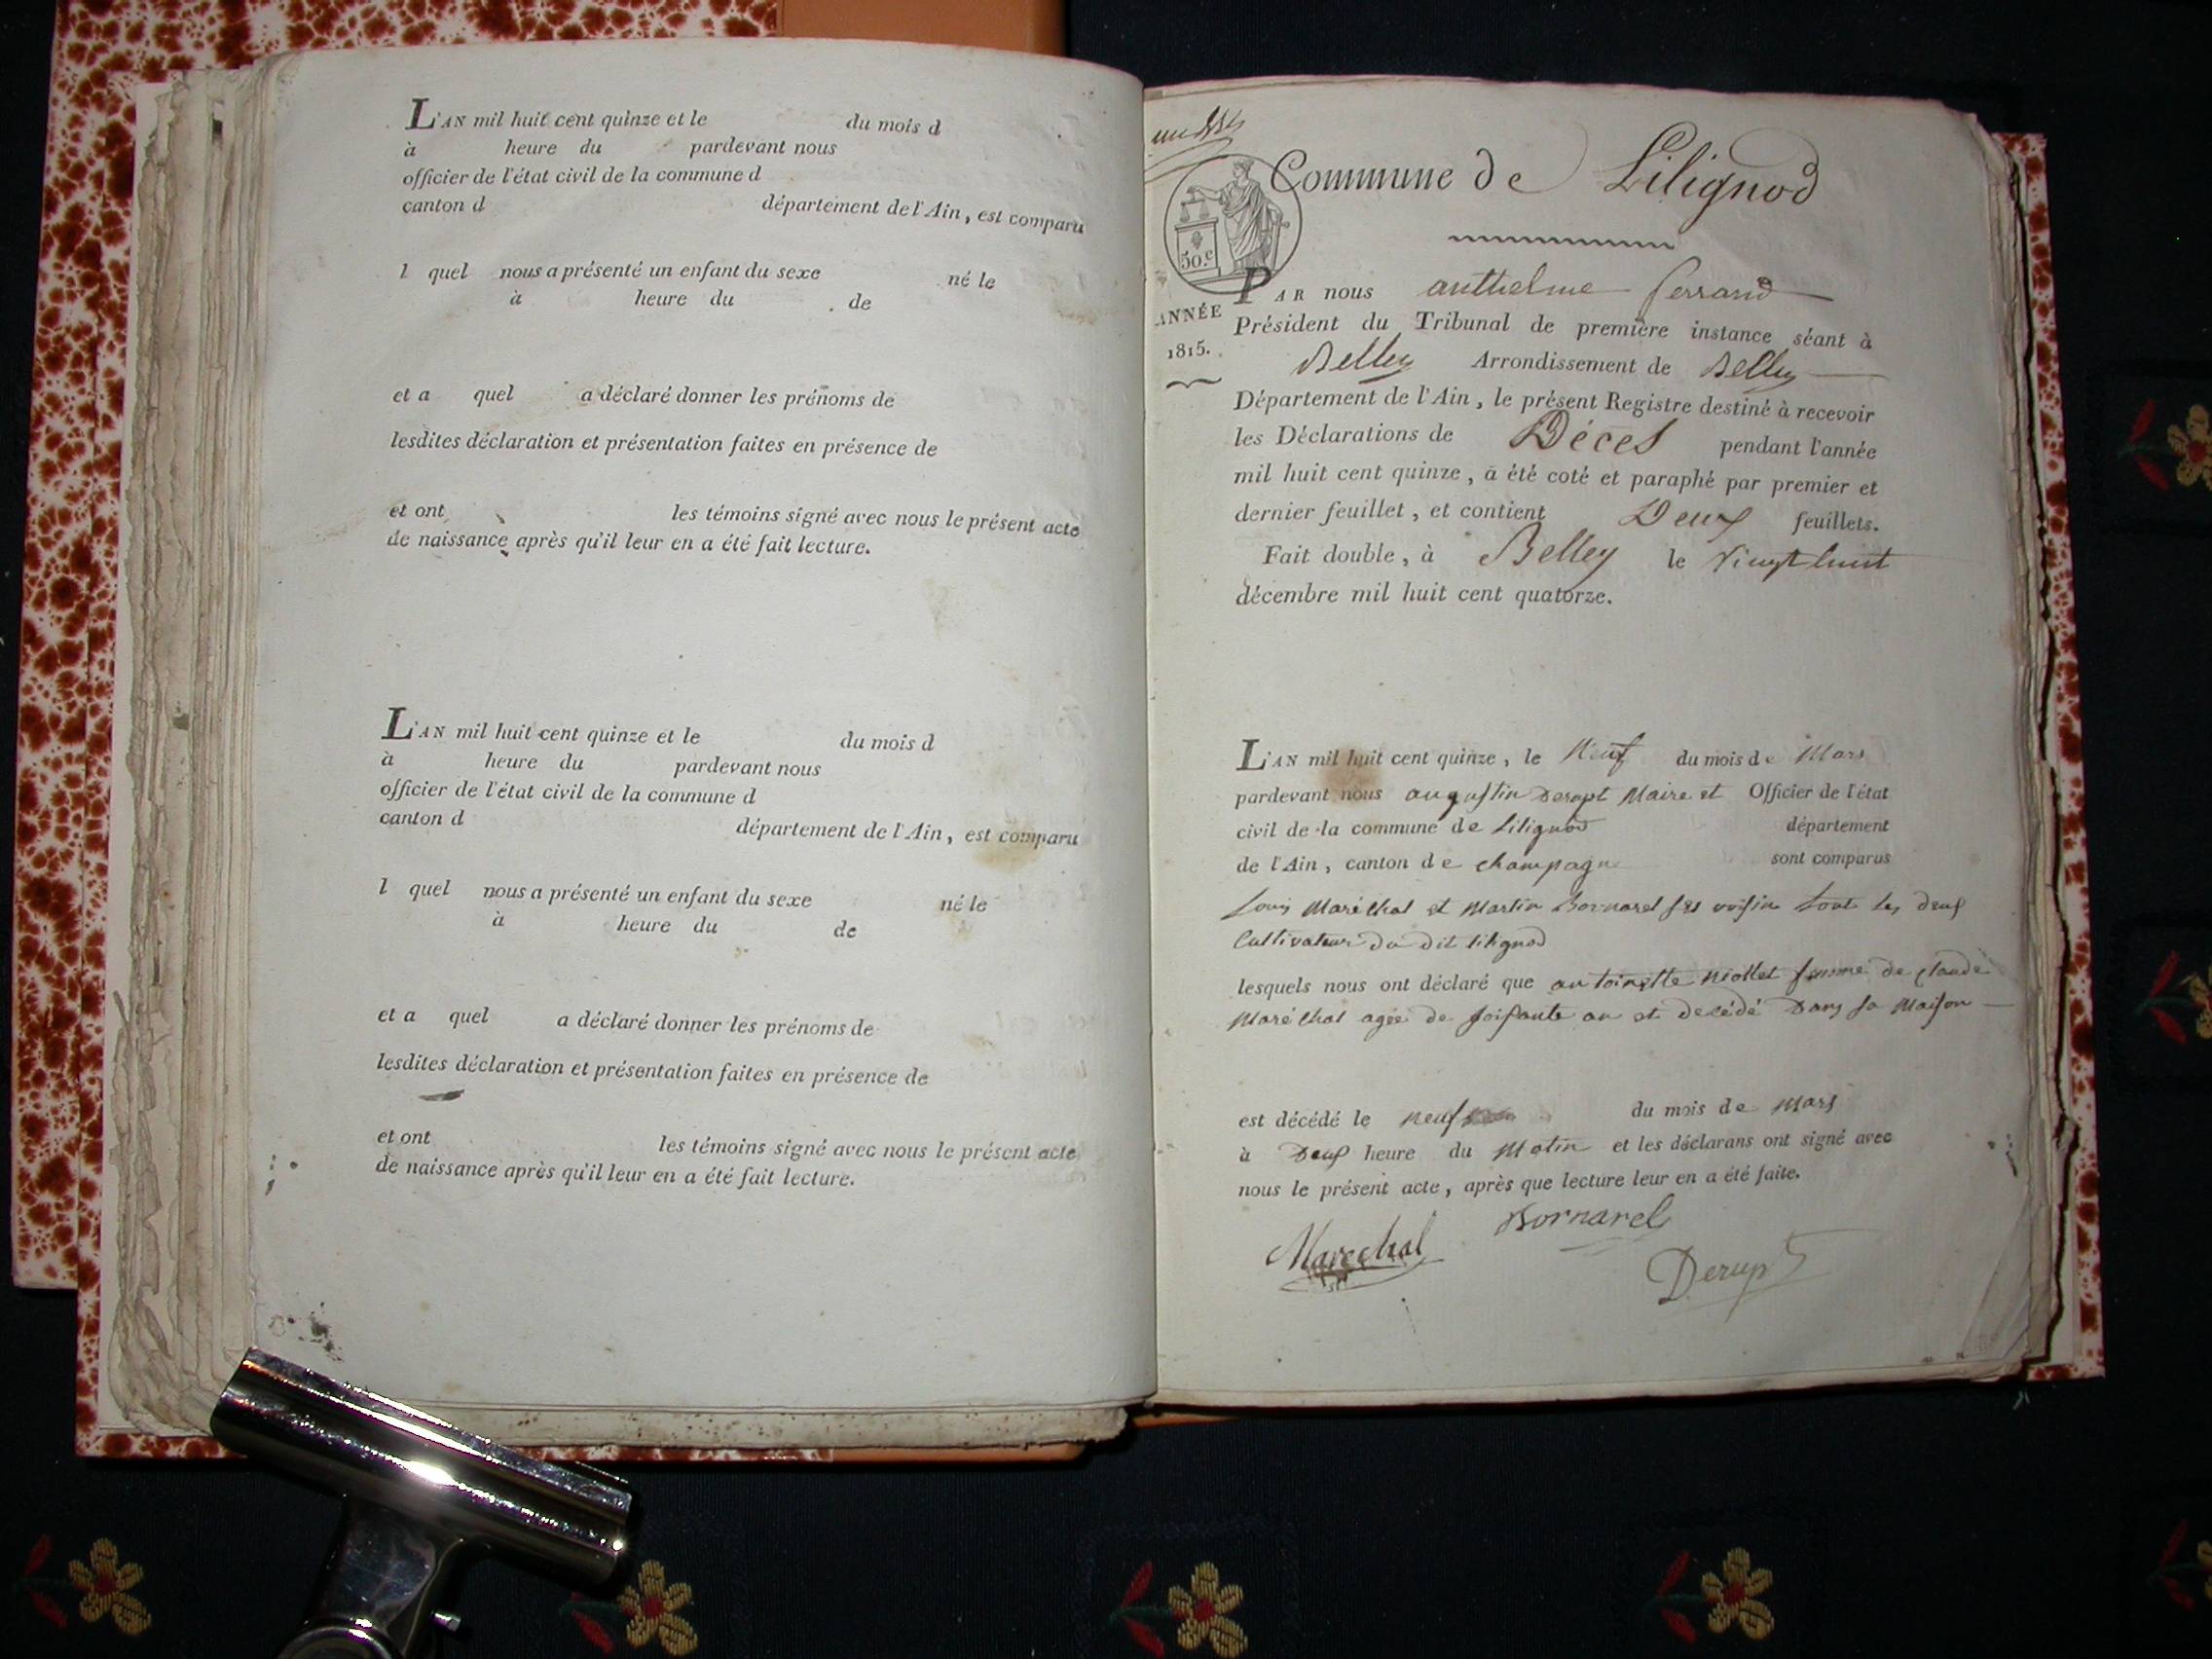 L'AN mil huit cent quinze et le du mois d
à heure du pardevant nous
officier de l'état civil de la commune d
canton d département de l'Ain, est comparu
l quel nous a présenté un enfant du sexe né le
à heure du de
et a quel a déclaré donner les prénoms de
lesdites déclaration et présentation faites en présence de
et ont les témoins signé avec nous le présent acte
de naissance après qu'il leur en a été fait lecture.
L'AN mil huit cent quinze et le du mois d
à heure du pardevant nous
officier de l'état civil de la commune d
canton d département de l'Ain, est comparu
l quel nous a présenté un enfant du sexe né le
à heure du de
et a quel a déclaré donner les prénoms de
lesdites déclaration et présentation faites en présence de
et ont les témoins signé avec nous le présent acte
de naissance après qu'il leur en a été fait lecture.
Commune de Lilignod
50.c
ANNÉE
1815.
PAR nous anthelme ferrand
Président du Tribunal de première instance séant à
Belley Arrondissement de Belley
Département de l'Ain, le présent Registre destiné à recevoir
les Déclarations de Décès pendant l'année
mil huit cent quinze, a été coté et paraphé par premier et
dernier feuillet, et contient Deux feuillets.
Fait double, à Belley le vingt huit
décembre mil huit cent quatorze.
L'AN mil huit cent quinze, le Neuf du mois de Mars
pardevant nous augustin Derupt Maire et Officier de l'état
civil de la commune de Lilignod département
de l'Ain, canton de champagne sont comparus
Louis Maréchal et Martin Bornarel ses voisin tout les deux
Cultivateur du dit lilignod
lesquels nous ont déclaré que antoinette Niollet femme de claude
Maréchal agée de soisante an et decédé Dans sa Maison
est décédé le neuf du mois de Mars
à Deux heure du Matin et les déclarans ont signé avec
nous le présent acte, après que lecture leur en a été faite.
Marechal Bornarel
Derupt